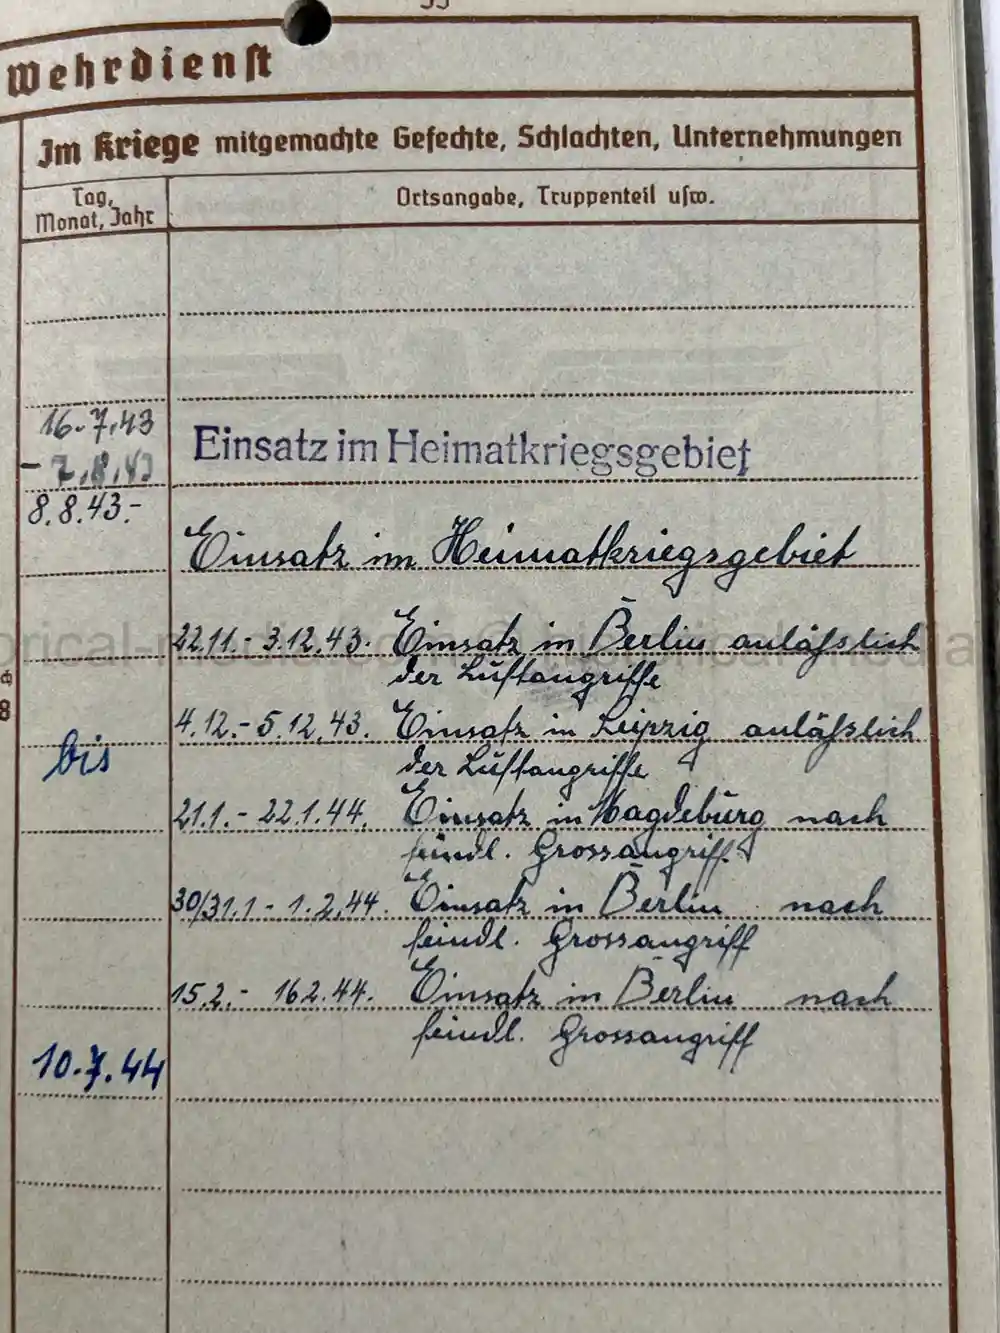 33
Wehrdienst
Im Kriege mitgemachte Gefechte, Schlachten, Unternehmungen
Tag, Monat, Jahr
Ortsangabe, Truppenteil usw.
16.7.43
- 7.8.43
Einsatz im Heimatkriegsgebiet
8.8.43.-
Einsatz im Heimatkriegsgebiet
22.11.- 3.12.43. Einsatz in Berlin anläßslich
der Luftangriffe
4.12.- 5.12.43. Einsatz in Leipzig anläßslich
bis
der Luftangriffe
21.1.- 22.1.44. Einsatz in Magdeburg nach
feindl. Grossangriff.
30/31.1 - 1.2.44. Einsatz in Berlin nach
feindl. Grossangriff
15.2.- 16.2.44. Einsatz in Berlin nach
feindl. Grossangriff
10.7.44
8